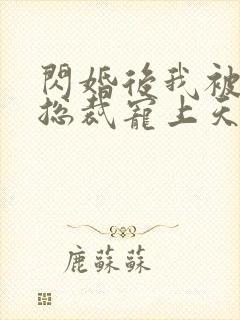 閃婚後我被
总裁寵上天
鹿蘇蘇